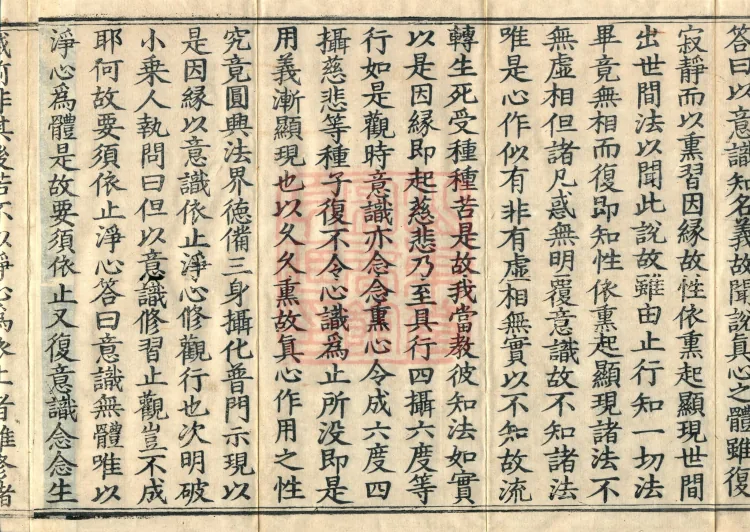 答曰以意識知名義故聞說真心之體雖復
寂靜而以熏習因緣故性依熏起顯現世間
出世間法以聞此說故雖由止行知一切法
畢竟無相而復即知性依熏起顯現諸法不
無虛相但諸凡惑無明覆意識故不知諸法
唯是心作似有非有虛相無實以不知故流
轉生死受種種苦是故我當教彼知法如實
以是因緣即起慈悲乃至具行四攝六度等
行如是觀時意識亦念念熏心令成六度四
攝慈悲等種子復不令心識為止所沒即是
用義漸顯現也以久久熏故真心作用之性
究竟圓興法界德備三身攝化普門示現以
是因緣以意識依止淨心修觀行也次明破
小乘人執問曰但以意識修習止觀豈不成
耶何故要須依止淨心答曰意識無體唯以
淨心為體是故要須依止又復意識念念生
滅前非其後若不以淨心為依止者雖修諸